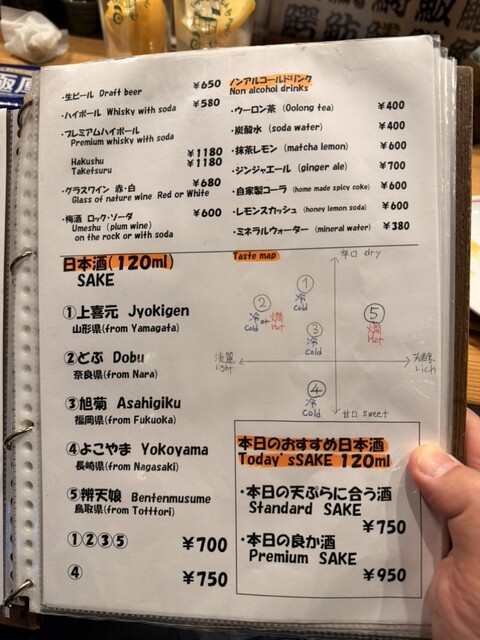 ・生ビール Draft beer ¥650
・ハイボール Whisky with soda ¥580
・プレミアムハイボール
Premium whisky with soda
Hakushu ¥1180
Taketsuru ¥1180
・グラスワイン 赤・白 ¥680
Glass of nature wine Red or White
・梅酒 ロック・ソーダ ¥600
Umeshu (plum wine)
on the rock or with soda
ノンアルコールドリンク
Non alcohol drinks
・ウーロン茶 (Oolong tea) ¥400
・炭酸水 (soda water) ¥400
・抹茶レモン (matcha lemon) ¥600
・ジンジャエール (ginger ale) ¥700
・自家製コーラ (home made spicy coke) ¥600
・レモンスカッシュ (honey lemon soda) ¥600
・ミネラルウォーター (mineral water) ¥380
日本酒(120ml)
SAKE
①上喜元 Jyokigen
山形県(from Yamagata)
②どぶ Dobu
奈良県(from Nara)
③旭菊 Asahigiku
福岡県(from Fukuoka)
④よこやま Yokoyama
長崎県(from Nagasaki)
⑤辨天娘 Bentenmusume
鳥取県(from Totttori)
①②③⑤ ¥700
④ ¥750
Taste map
辛口 dry
①
冷
Cold
②
冷 or 燗
Cold Hot
⑤
燗
Hot
③
冷
Cold
淡麗
light
芳醇
Lich
④
冷
Cold
甘口 sweet
本日のおすすめ日本酒
Today'sSAKE 120ml
・本日の天ぷらに合う酒
Standard SAKE
¥750
・本日の良か酒
Premium SAKE
¥950